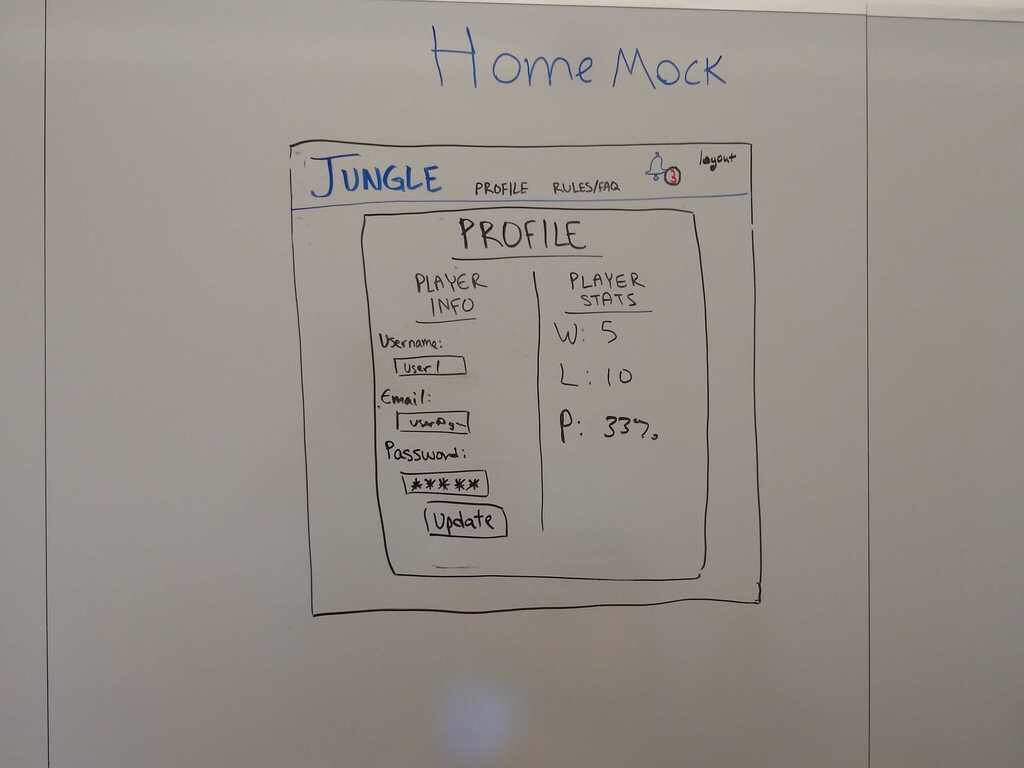 Home Mock
JUNGLE PROFILE RULES/FAQ 3 layout
PROFILE
PLAYER
INFO
Username:
User 1
Email:
user@g~
Password:
*****
Update
PLAYER
STATS
W: 5
L: 10
P: 33%